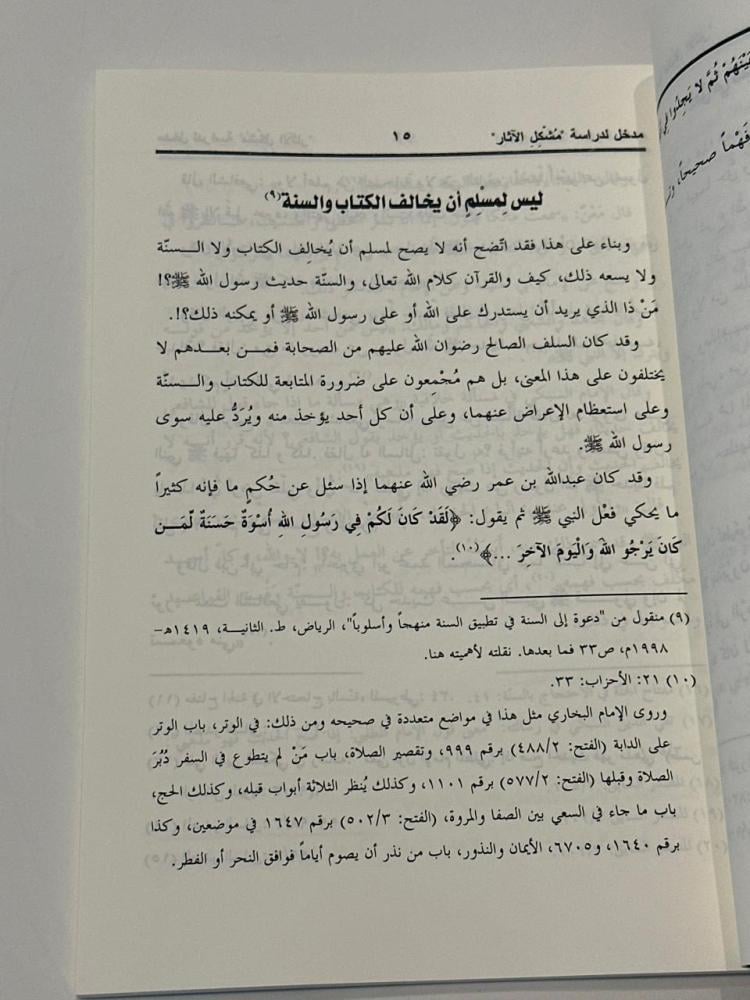 مدخل لدراسة "مُشْكِلِ الآثار" ١٥
ليس لِمسْلِمٍ أن يخالف الكتاب والسنة(٩)
وبناء على هذا فقد اتّضح أنه لا يصح لمسلم أن يُخالِف الكتاب ولا السـنّة
ولا يسعه ذلك، كيف والقرآن كلام الله تعالى، والسنّة حديث رسول الله ﷺ؟!
مَنْ ذَا الذي يريد أن يستدرك على الله أو على رسول الله ﷺ أو يمكنه ذلك؟!.
وقد كان السلف الصالح رضوان الله عليهم من الصحابة فمـن بعـدهم لا
يختلفون على هذا المعنى، بل هم مُجْمِعون على ضرورة المتابعة للكتاب والـسنّة
وعلى استعظام الإعراض عنهما، وعلى أن كل أحد يؤخذ منه ويُرَدُّ عليه سوى
رسول الله ﷺ.
وقد كان عبدالله بن عمر رضي الله عنهما إذا سئل عن حُكمٍ ما فإنه كثيراً
ما يحكي فعْل النبي ﷺ ثم يقول: ﴿لَقَدْ كَانَ لَكُمْ فِي رَسُولِ اللهِ أُسْوَةٌ حَسَنَةٌ لِّمَـن
كَانَ يَرْجُو اللهَ وَالْيَومَ الآخِرَ ...﴾(١٠).
(٩) منقول من "دعوة إلى السنة في تطبيق السنة منهجاً وأسلوباً"، الرياض، ط. الثانيـة، ١٤١٩هـ-
١٩٩٨م، ص٣٣ فما بعدها. نقلته لأهميته هنا.
(١٠) ٢١: الأحزاب: ٣٣.
وروى الإمام البخاري مثل هذا في مواضع متعددة في صحيحه ومن ذلك: في الوتر، باب الوتر
على الدابة (الفتح: ٤٨٨/٢) برقم ٩٩٩، وتقصير الصلاة، باب مَنْ لم يتطوع في السفر دُبُرَ
الصلاة وقبلها (الفتح: ٥٧٧/٢) برقم ١١٠١، وكذلك يُنظر الثلاثة أبواب قبله، وكذلك الحج،
باب ما جاء في السعي بين الصفا والمروة، (الفتح: ٥٠٢/٣) برقم ١٦٤٧ في موضعين، وكذا
برقم ١٦٤٠، و٦٧٠٥، الأيمان والنذور، باب من نذر أن يصوم أياماً فوافق النحر أو الفطر.
ثُمَّ لا يَجِدُوا
فَهْماً صحيحاً،